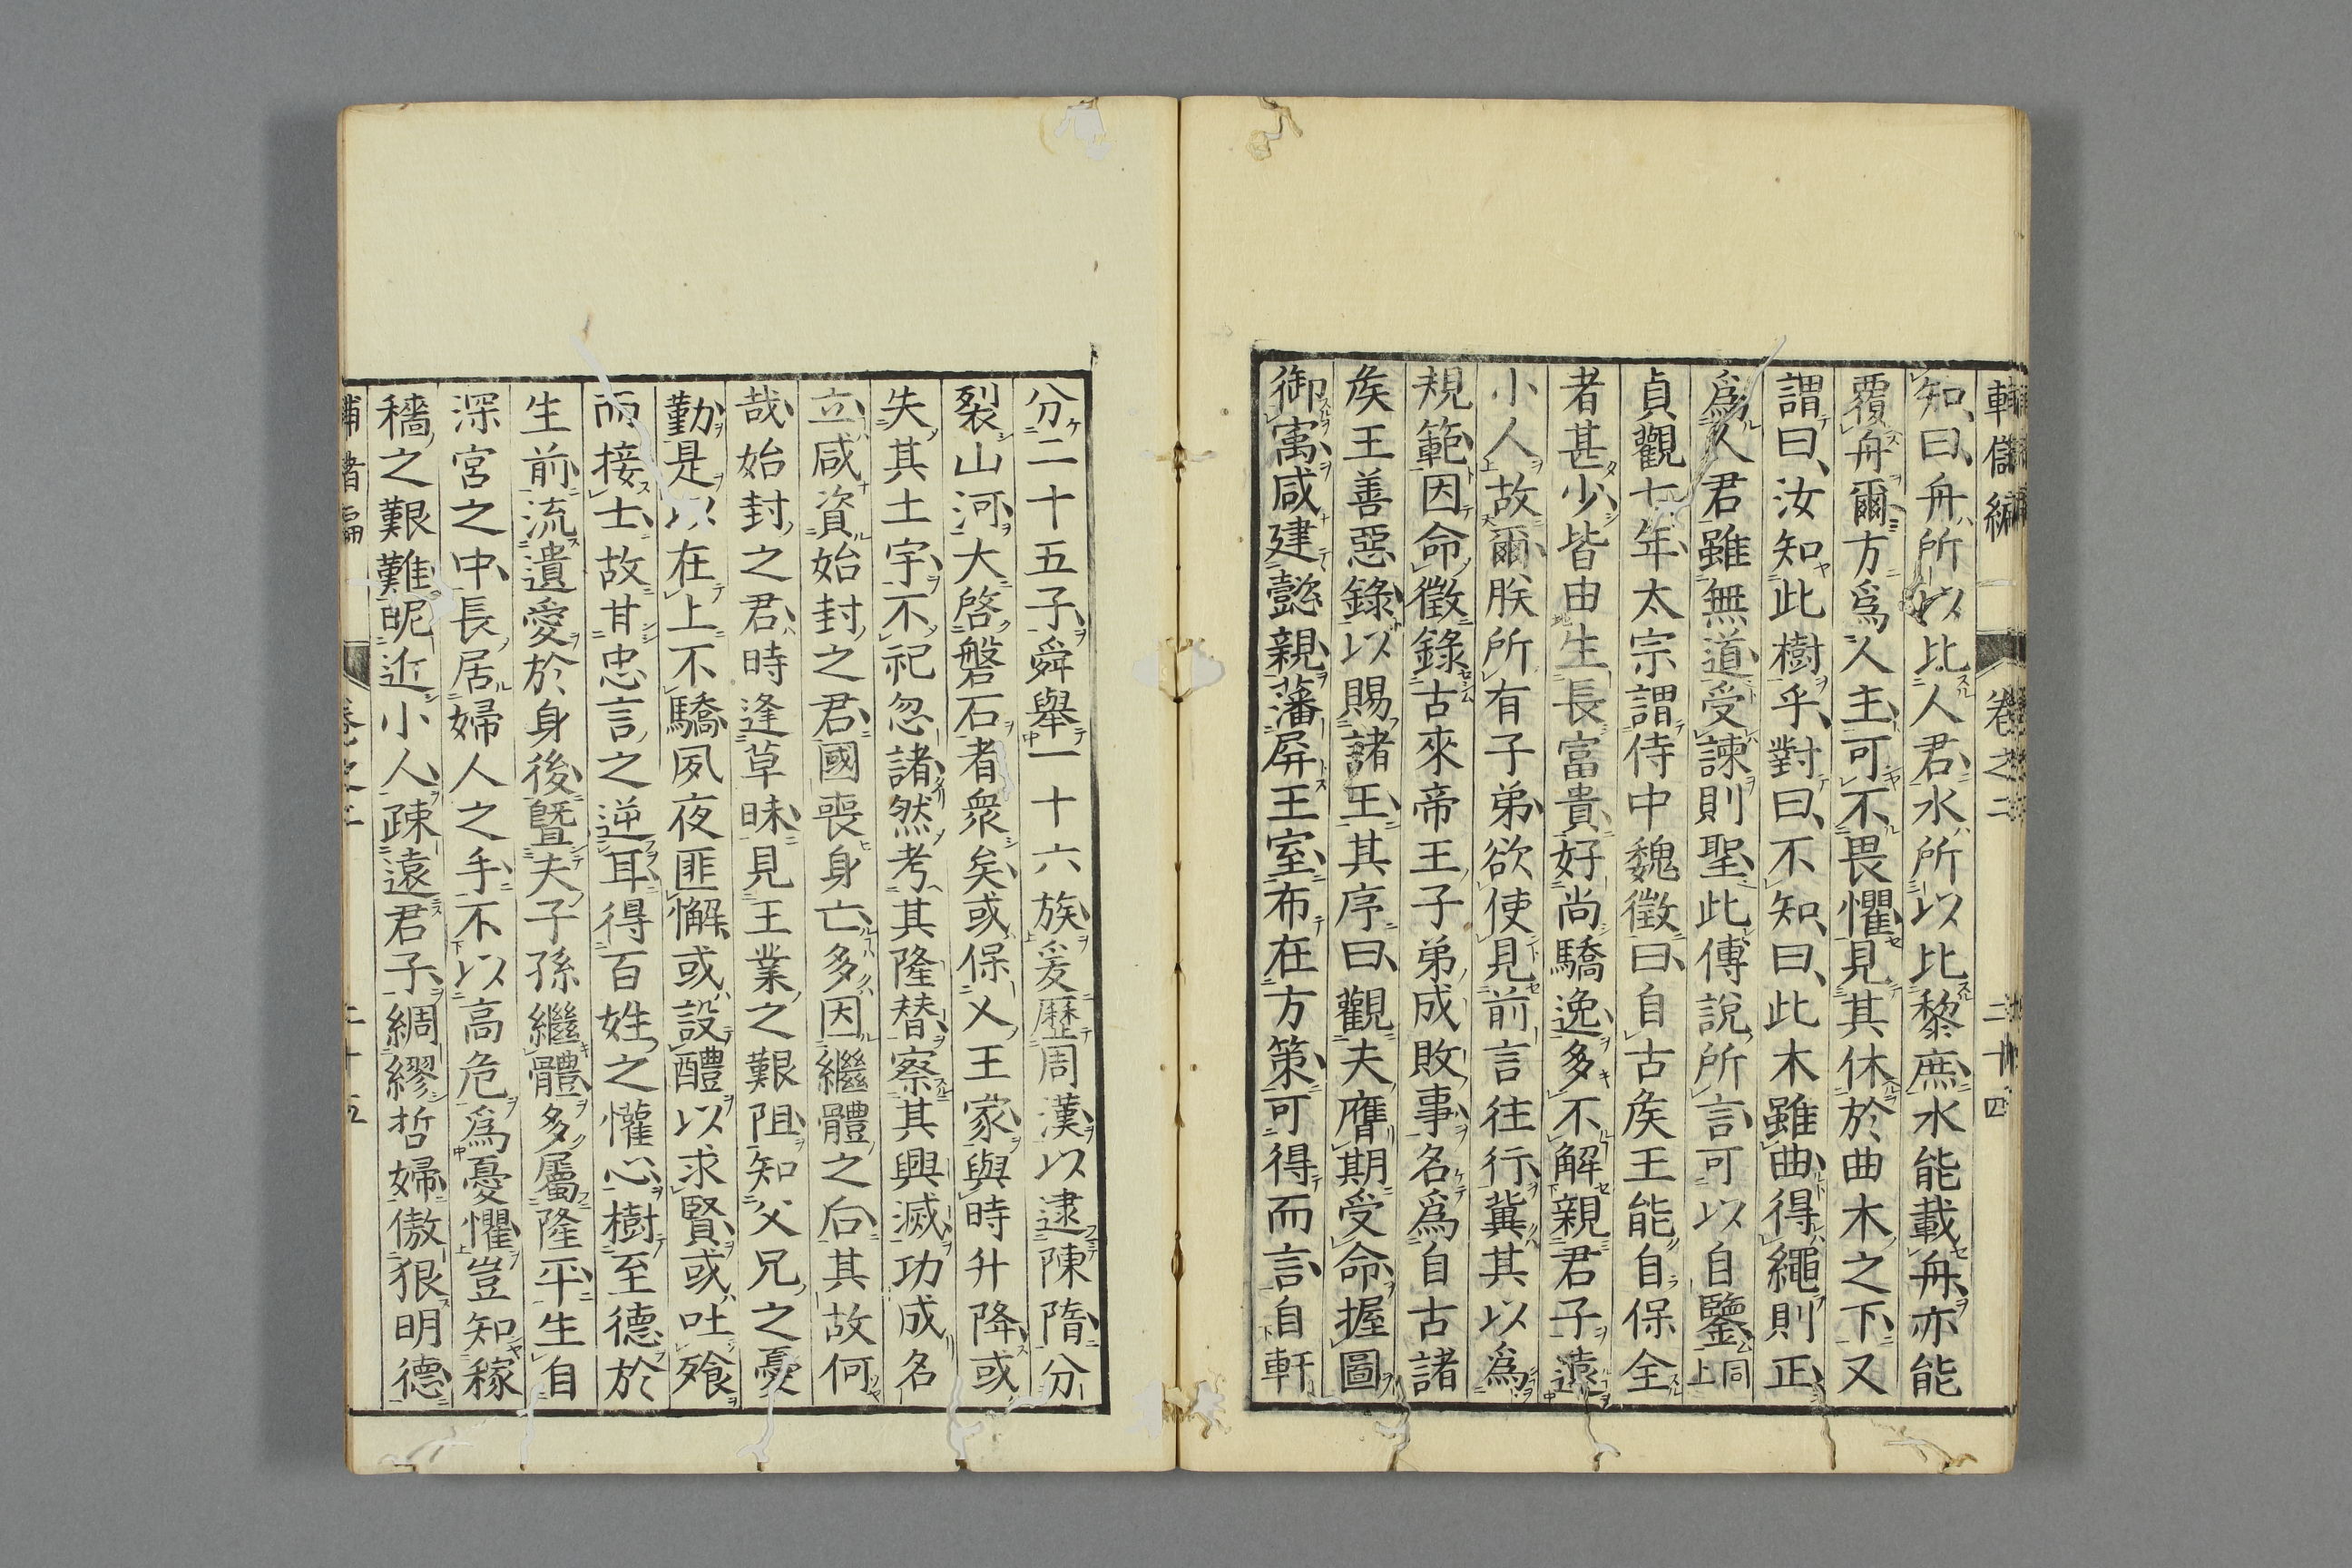 輔儲編 卷之二 二十四
知曰舟所以比人君水所以比黎庶水能載舟亦能
覆舟爾方爲人主可不畏懼見其休於曲木之下又
謂曰汝知此樹乎對曰不知曰此木雖曲得繩則正
爲人君雖無道受諫則聖此傅說所言可以自鑒同上
貞觀七年太宗謂侍中魏徵曰自古矦王能自保全
者甚少皆由生長富貴好尚驕逸多不解親君子遠
小人故爾朕所有子弟欲使見前言往行冀其以爲
規範因命徵錄古來帝王子弟成敗事名爲自古諸
矦王善惡錄以賜諸王其序曰觀夫膺期受命握圖
御㝢咸建懿親藩屏王室布在方策可得而言自軒
分二十五子舜舉一十六族爰歷周漢以逮陳隋分
裂山河大啓磐石者衆矣或保乂王家與時升降或
失其土宇不祀忽諸然考其隆替察其興滅功成名
立咸資始封之君國喪身亡多因繼體之后其故何
哉始封之君時逢草昧見王業之艱阻知父兄之憂
勤是以在上不驕夙夜匪懈或設醴以求賢或吐飱
而接士故甘忠言之逆耳得百姓之懽心樹至德於
生前流遺愛於身後曁夫子孫繼體多屬隆平生自
深宮之中長居婦人之手不以高危爲憂懼豈知稼
穡之艱難昵近小人疎遠君子綢繆哲婦傲狠明德
卷之二 二十五